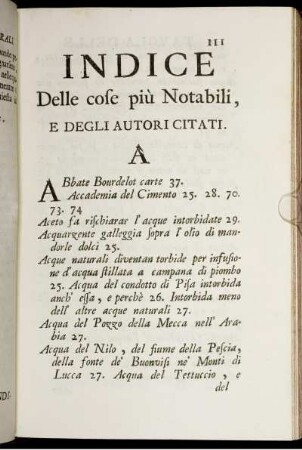 III
INDICE
Delle cose più Notabili,
E DEGLI AUTORI CITATI.
A
ABbate Bourdelot carte 37.
Accademia del Cimento 25. 28. 70.
73. 74
Aceto fa rischiarar l'acque intorbidate 29.
Acquarzente galleggia sopra l'olio di man-
dorle dolci 25.
Acque naturali diventan torbide per infusio-
ne d'acqua stillata a campana di piombo
25. Acqua del condotto di Pisa intorbida
anch' essa, e perchè 26. Intorbida meno
dell' altre acque naturali 27.
Acqua del Pozzo della Mecca nell' Ara-
bia 27.
Acqua del Nilo, del fiume della Pescia,
della fonte de' Buonvisi ne' Monti di
Lucca 27. Acqua del Tettuccio, e
del